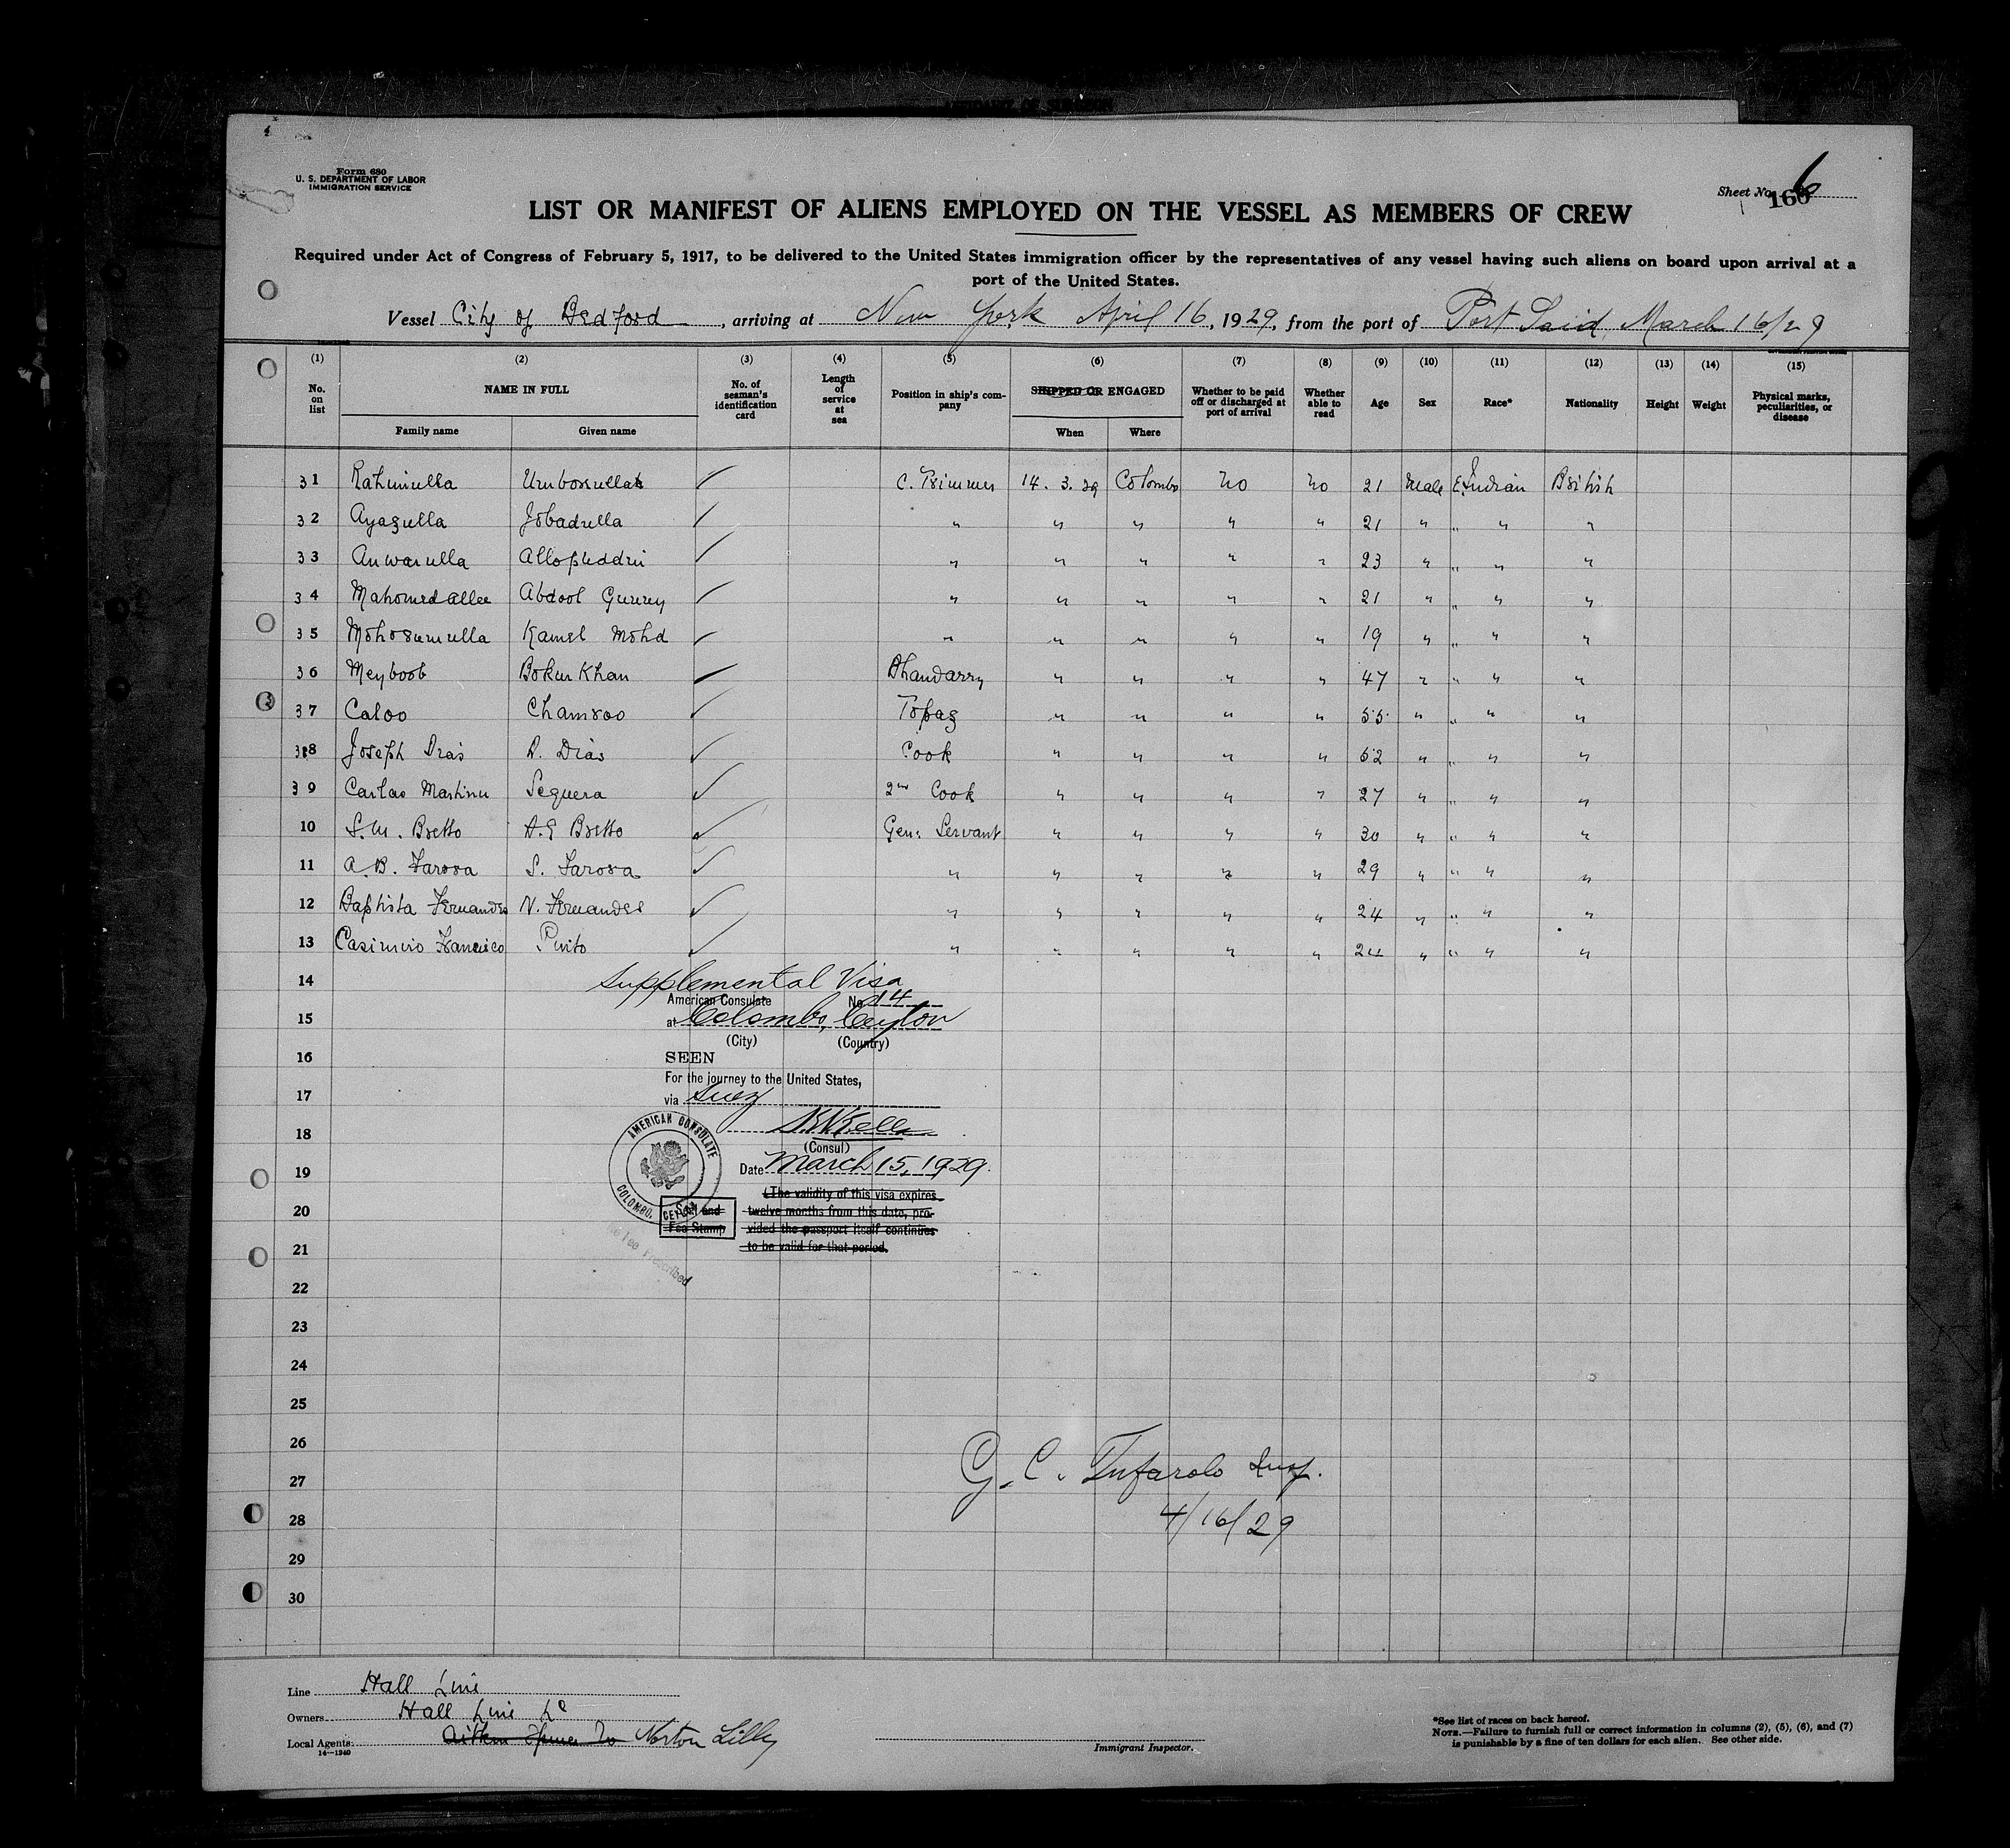 Form 680
U. S. DEPARTMENT OF LABOR
IMMIGRATION SERVICE
Sheet No. 6
166
LIST OR MANIFEST OF ALIENS EMPLOYED ON THE VESSEL AS MEMBERS OF CREW
Required under Act of Congress of February 5, 1917, to be delivered to the United States immigration officer by the representatives of any vessel having such aliens on board upon arrival at a
port of the United States.
Vessel City of Bedford, arriving at New York April 16, 1929, from the port of Port Said March 16/29
(1) (2) (3) (4) (5) (6) (7) (8) (9) (10) (11) (12) (13) (14) (15)
No. on list NAME IN FULL No. of seaman's identification card Length of service at sea Position in ship's company SHIPPED OR ENGAGED Whether to be paid off or discharged at port of arrival Whether able to read Age Sex Race* Nationality Height Weight Physical marks, peculiarities, or disease
Family name Given name When Where
31 Rahimulla Umborullah C. Trimmer 14. 3. 29 Colombo No No 21 Male E. Indian British
32 Ayazulla Jobadulla " " " " " 21 " " " "
33 Anwarulla " " " " " 23 " " " "
34 Mahomed Allee Abdool " " " " " 21 " " " "
35 Kamel Mohd " " " " " 19 " " " "
36 Meyboob Bokur Khan Bhandarry " " " " 47 " " " "
37 Caloo Chamroo Topaz " " " " 55 " " " "
38 Joseph Dias R. Dias Cook " " " " 52 " " " "
39 Carlao Martinu Sequera 2nd Cook " " " " 27 " " " "
10 S.M. Bretto A.G Bretto Gen: Servant " " " " 30 " " " "
11 A.B. Farosa S. Farosa " " " " " 29 " " " "
12 Baptista Fernandes N. Fernandes " " " " " 24 " " " "
13 Casimiro Francisco Pinto " " " " " 24 " " " "
14 Supplemental Visa
American Consulate No. 14
15 at Colombo, Ceylon
(City) (Country)
16 SEEN
For the journey to the United States,
17 via Suez
18
(Consul)
AMERICAN CONSULATE
COLOMBO, CEYLON
19 Date March 15, 1929.
(The validity of this visa expires
20 Seal and twelve months from this date, pro-
Fee Stamp vided the passport itself continues
21 to be valid for that period.
No Fee Prescribed
22
23
24
25
26
27 G. C. Tufarolo Insp.
28 4/16/29
29
30
Line Hall Line
Owners Hall Line Ld
Local Agents: Aitken Spence Co Norton Lilly
14—1940
Immigrant Inspector.
*See list of races on back hereof.
NOTE.—Failure to furnish full or correct information in columns (2), (5), (6), and (7)
is punishable by a fine of ten dollars for each alien. See other side.